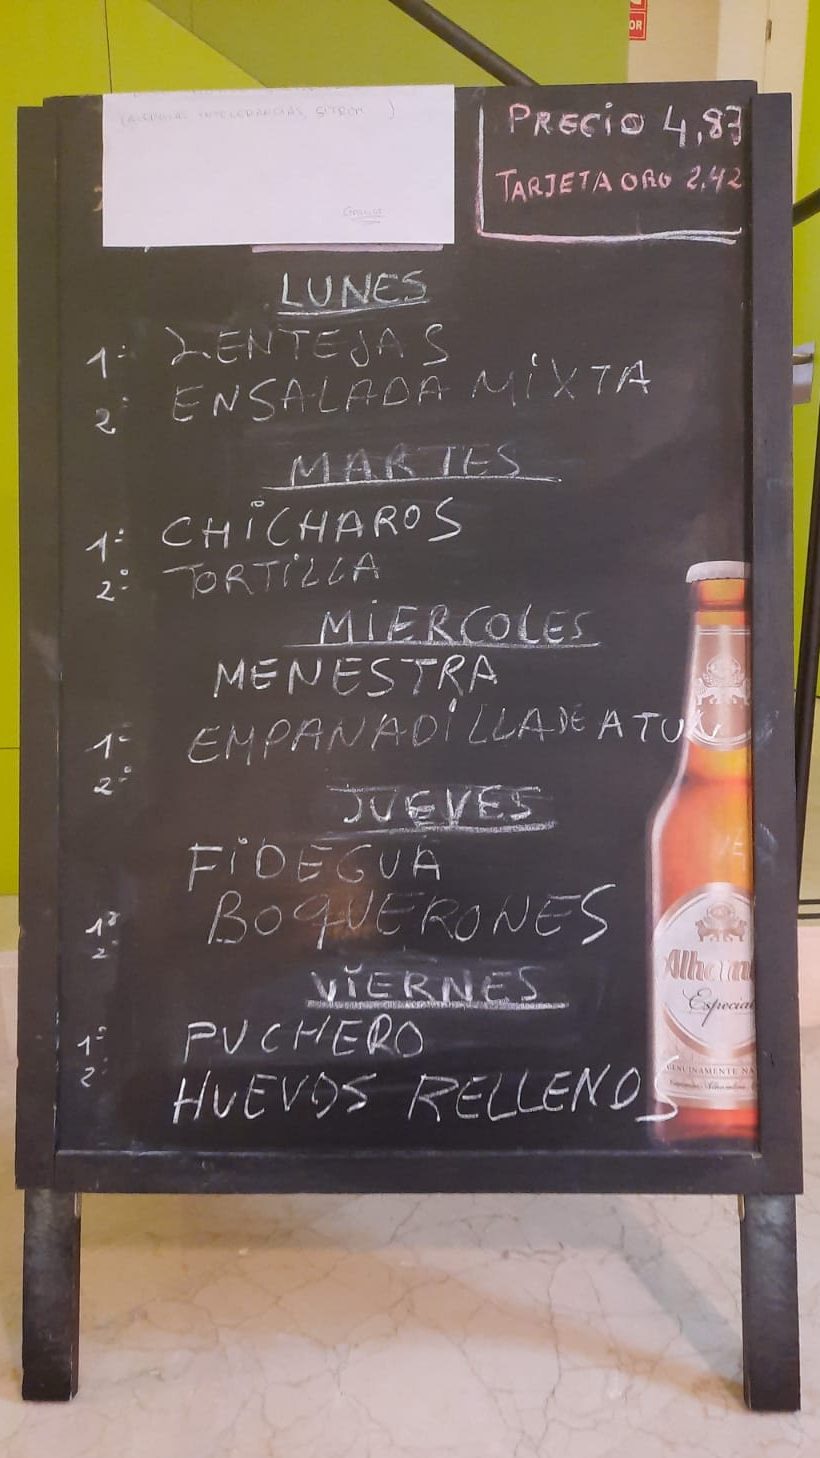 (ALERGIAS, INTOLERANCIAS, SITROM )
Gracias
PRECIO 4,83
TARJETA ORO 2,42
LUNES
1º LENTEJAS
2º ENSALADA MIXTA
MARTES
1º CHICHAROS
2º TORTILLA
MIERCOLES
MENESTRA
1º EMPANADILLA DE ATUN
2º
JUEVES
FIDEGUA
1º BOQUERONES
2º
VIERNES
1º PUCHERO
2º HUEVOS RELLENOS
Alham
Especial
GENUINAMENTE NA